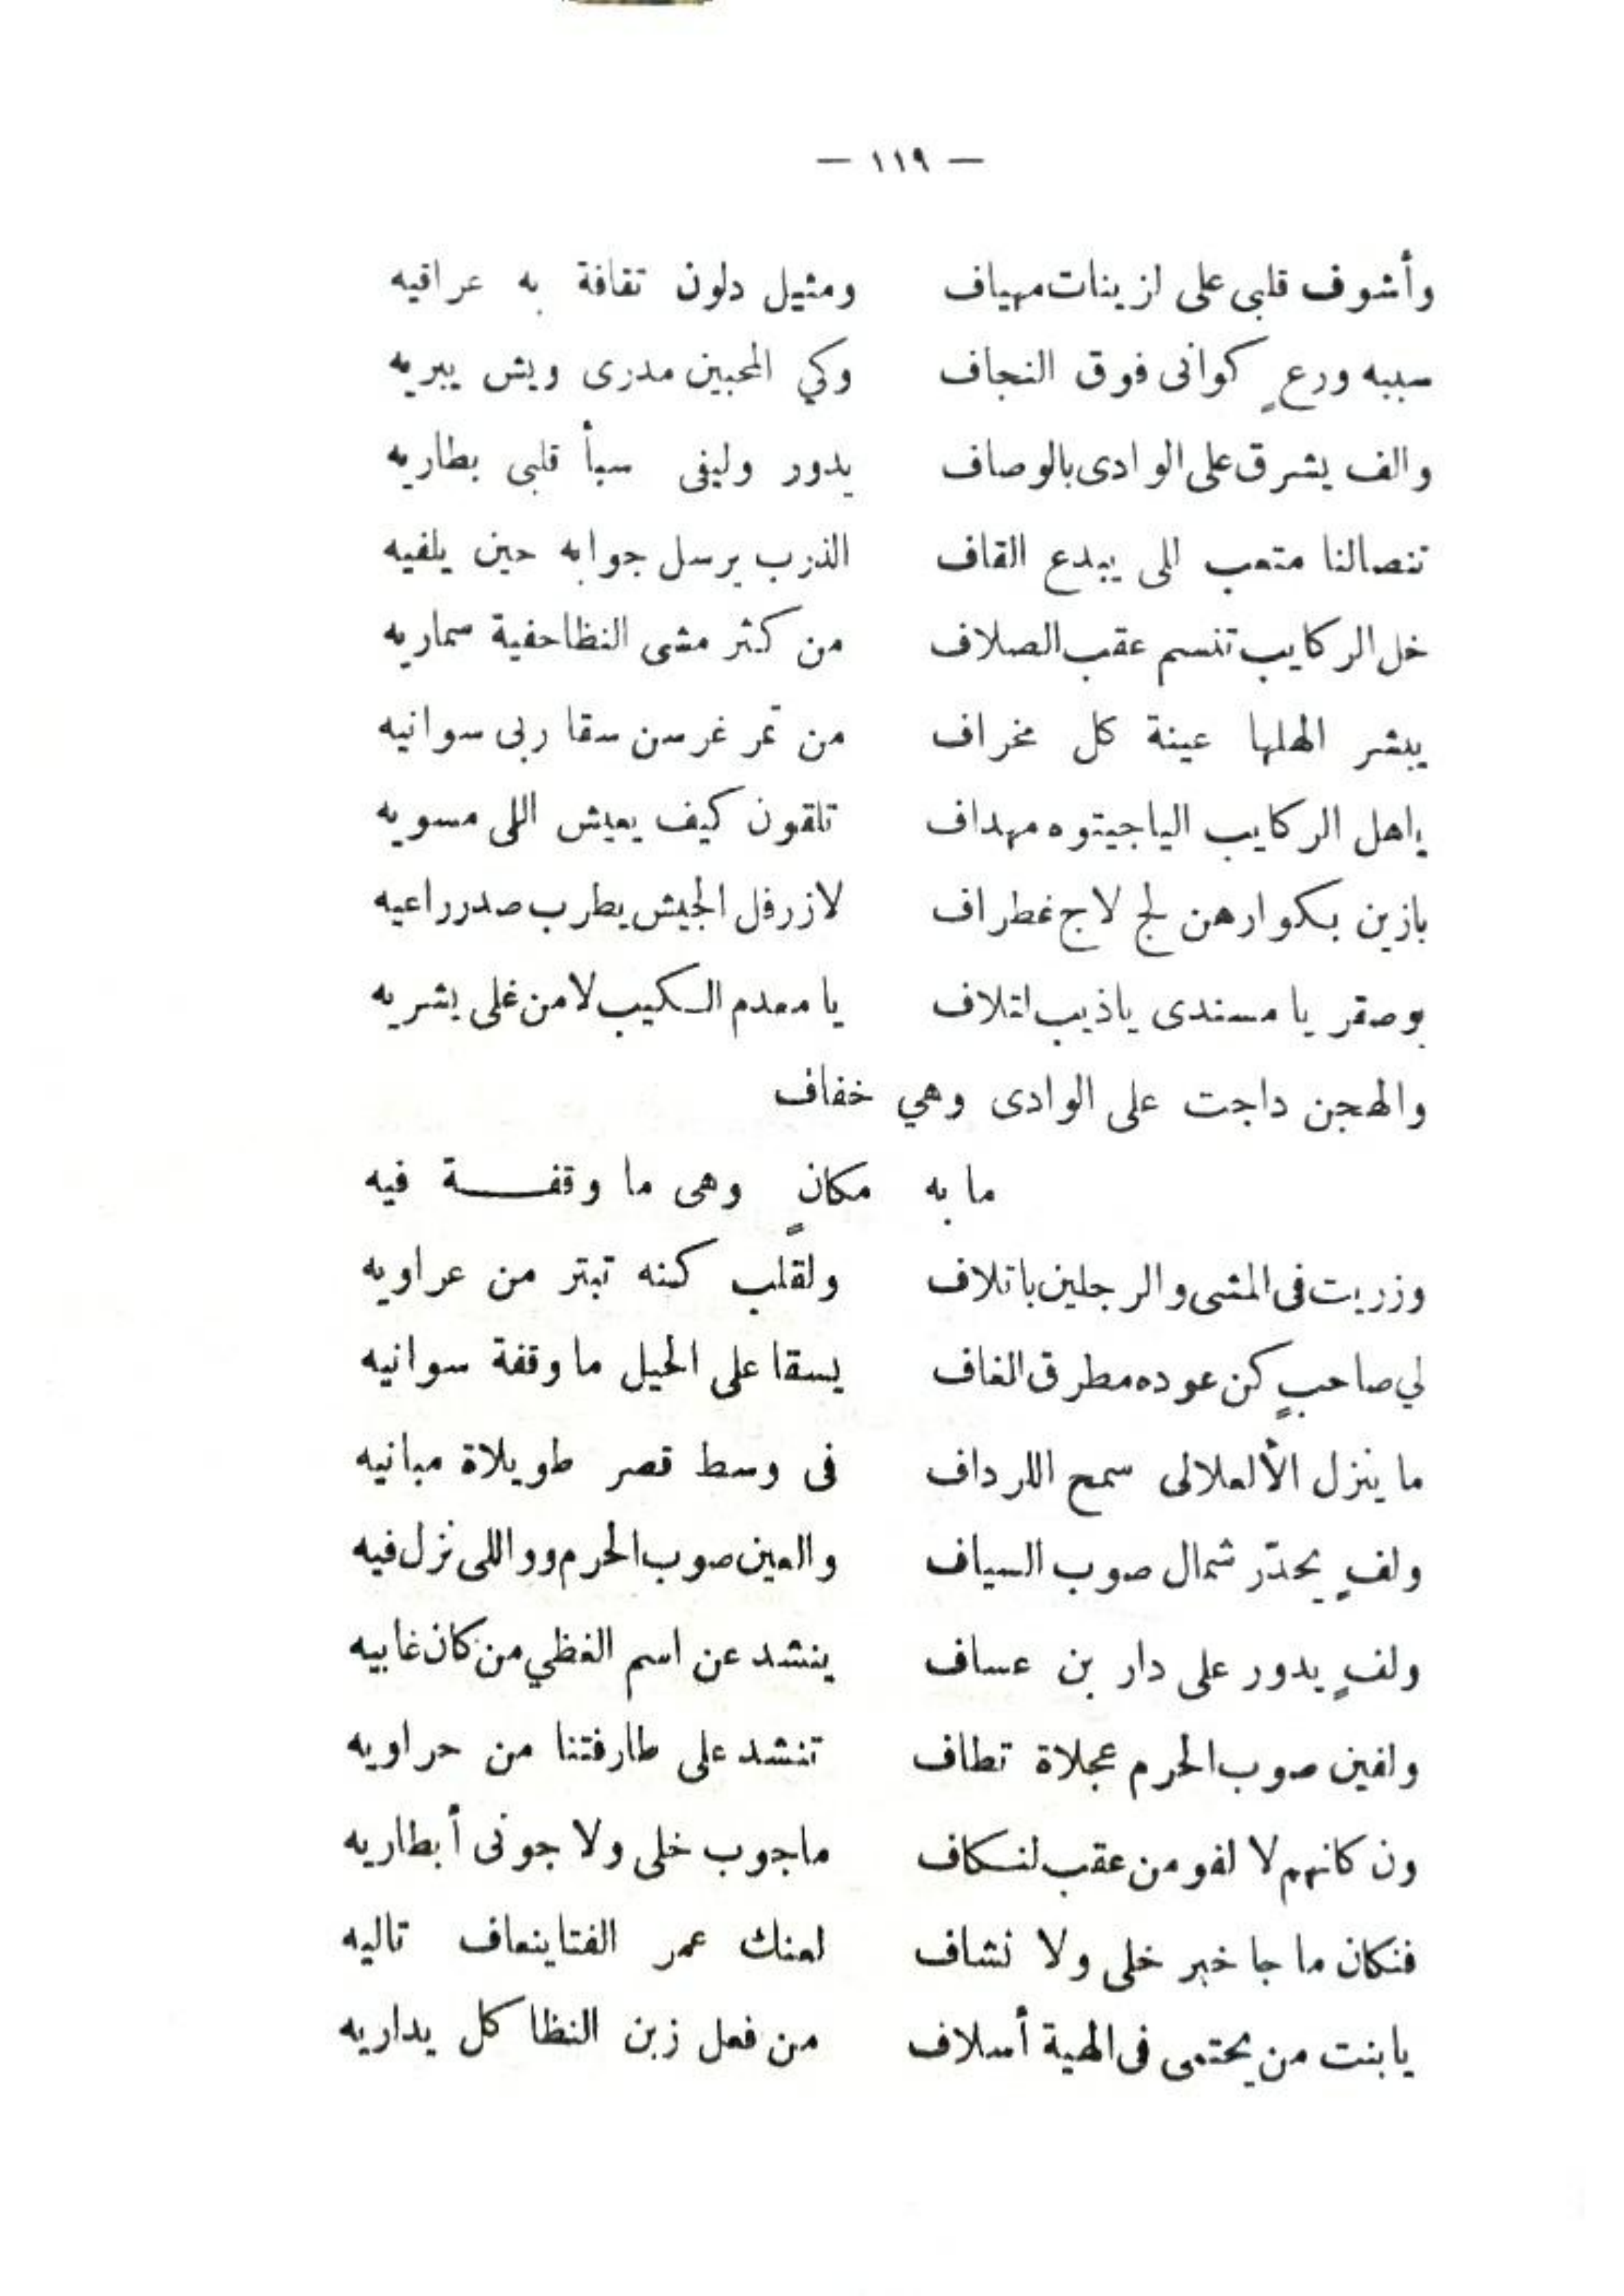 — ١١٩ —
وأشوف قلبى على ازينات مهياف ومثيل دلون تقافة به عراقيه
سببه ورعٍ كوانى فوق النجاف وكي المحبين مدرى ويش يبريه
والف يشرق على الوادى بالوصاف يدور وليفى سبأ قلبى بطاريه
تنصالنا متعب اللى يبدع القاف الذرب يرسل جوابه حين يلفيه
خل الركايب تنسم عقب الصلاف من كثر مشى النظا حفية سماريه
يبشر الهلها عينة كل مخراف من تمر غرسن سقا ربى سوانيه
ياهل الركايب الياجيتوه مهداف تلقون كيف يعيش اللى مسويه
يازين بكوارهن لج لاج غطراف لازرفل الجيش يطرب صدر راعيه
بوصقر يا مسندى ياذيب لتلاف يا معدم السكيب لامن غلى يشريه
والهجن داجت على الوادى وهي خفاف
ما به مكانٍ وهى ما وقفـــة فيه
وزريت فى المشى والرجلين باتلاف ولقلب كنه تبتر من عراويه
لي صاحبٍ كن عوده مطرق الغاف يسقا على الحيل ما وقفة سوانيه
ما ينزل الألعلالى سمح اللرداف فى وسط قصر طويلاة مبانيه
ولفٍ يحدّر شمال صوب السياف والعين صوب الحرم وو اللى نزل فيه
ولفٍ يدور على دار بن عساف ينشد عن اسم الغظي من كان غابيه
ولفين صوب الحرم عجلاة تطاف تنشد على طارفتنا من حراويه
ون كانهم لا لفو من عقب لنسكاف ماجوب خلى ولا جونى أبطاريه
فنكان ما جا خبر خلى ولا نشاف لعنك عمر الفتا ينعاف تاليه
يا بنت من يحتمى فى الهية أسلاف من فعل زبن النظا كل يداريه